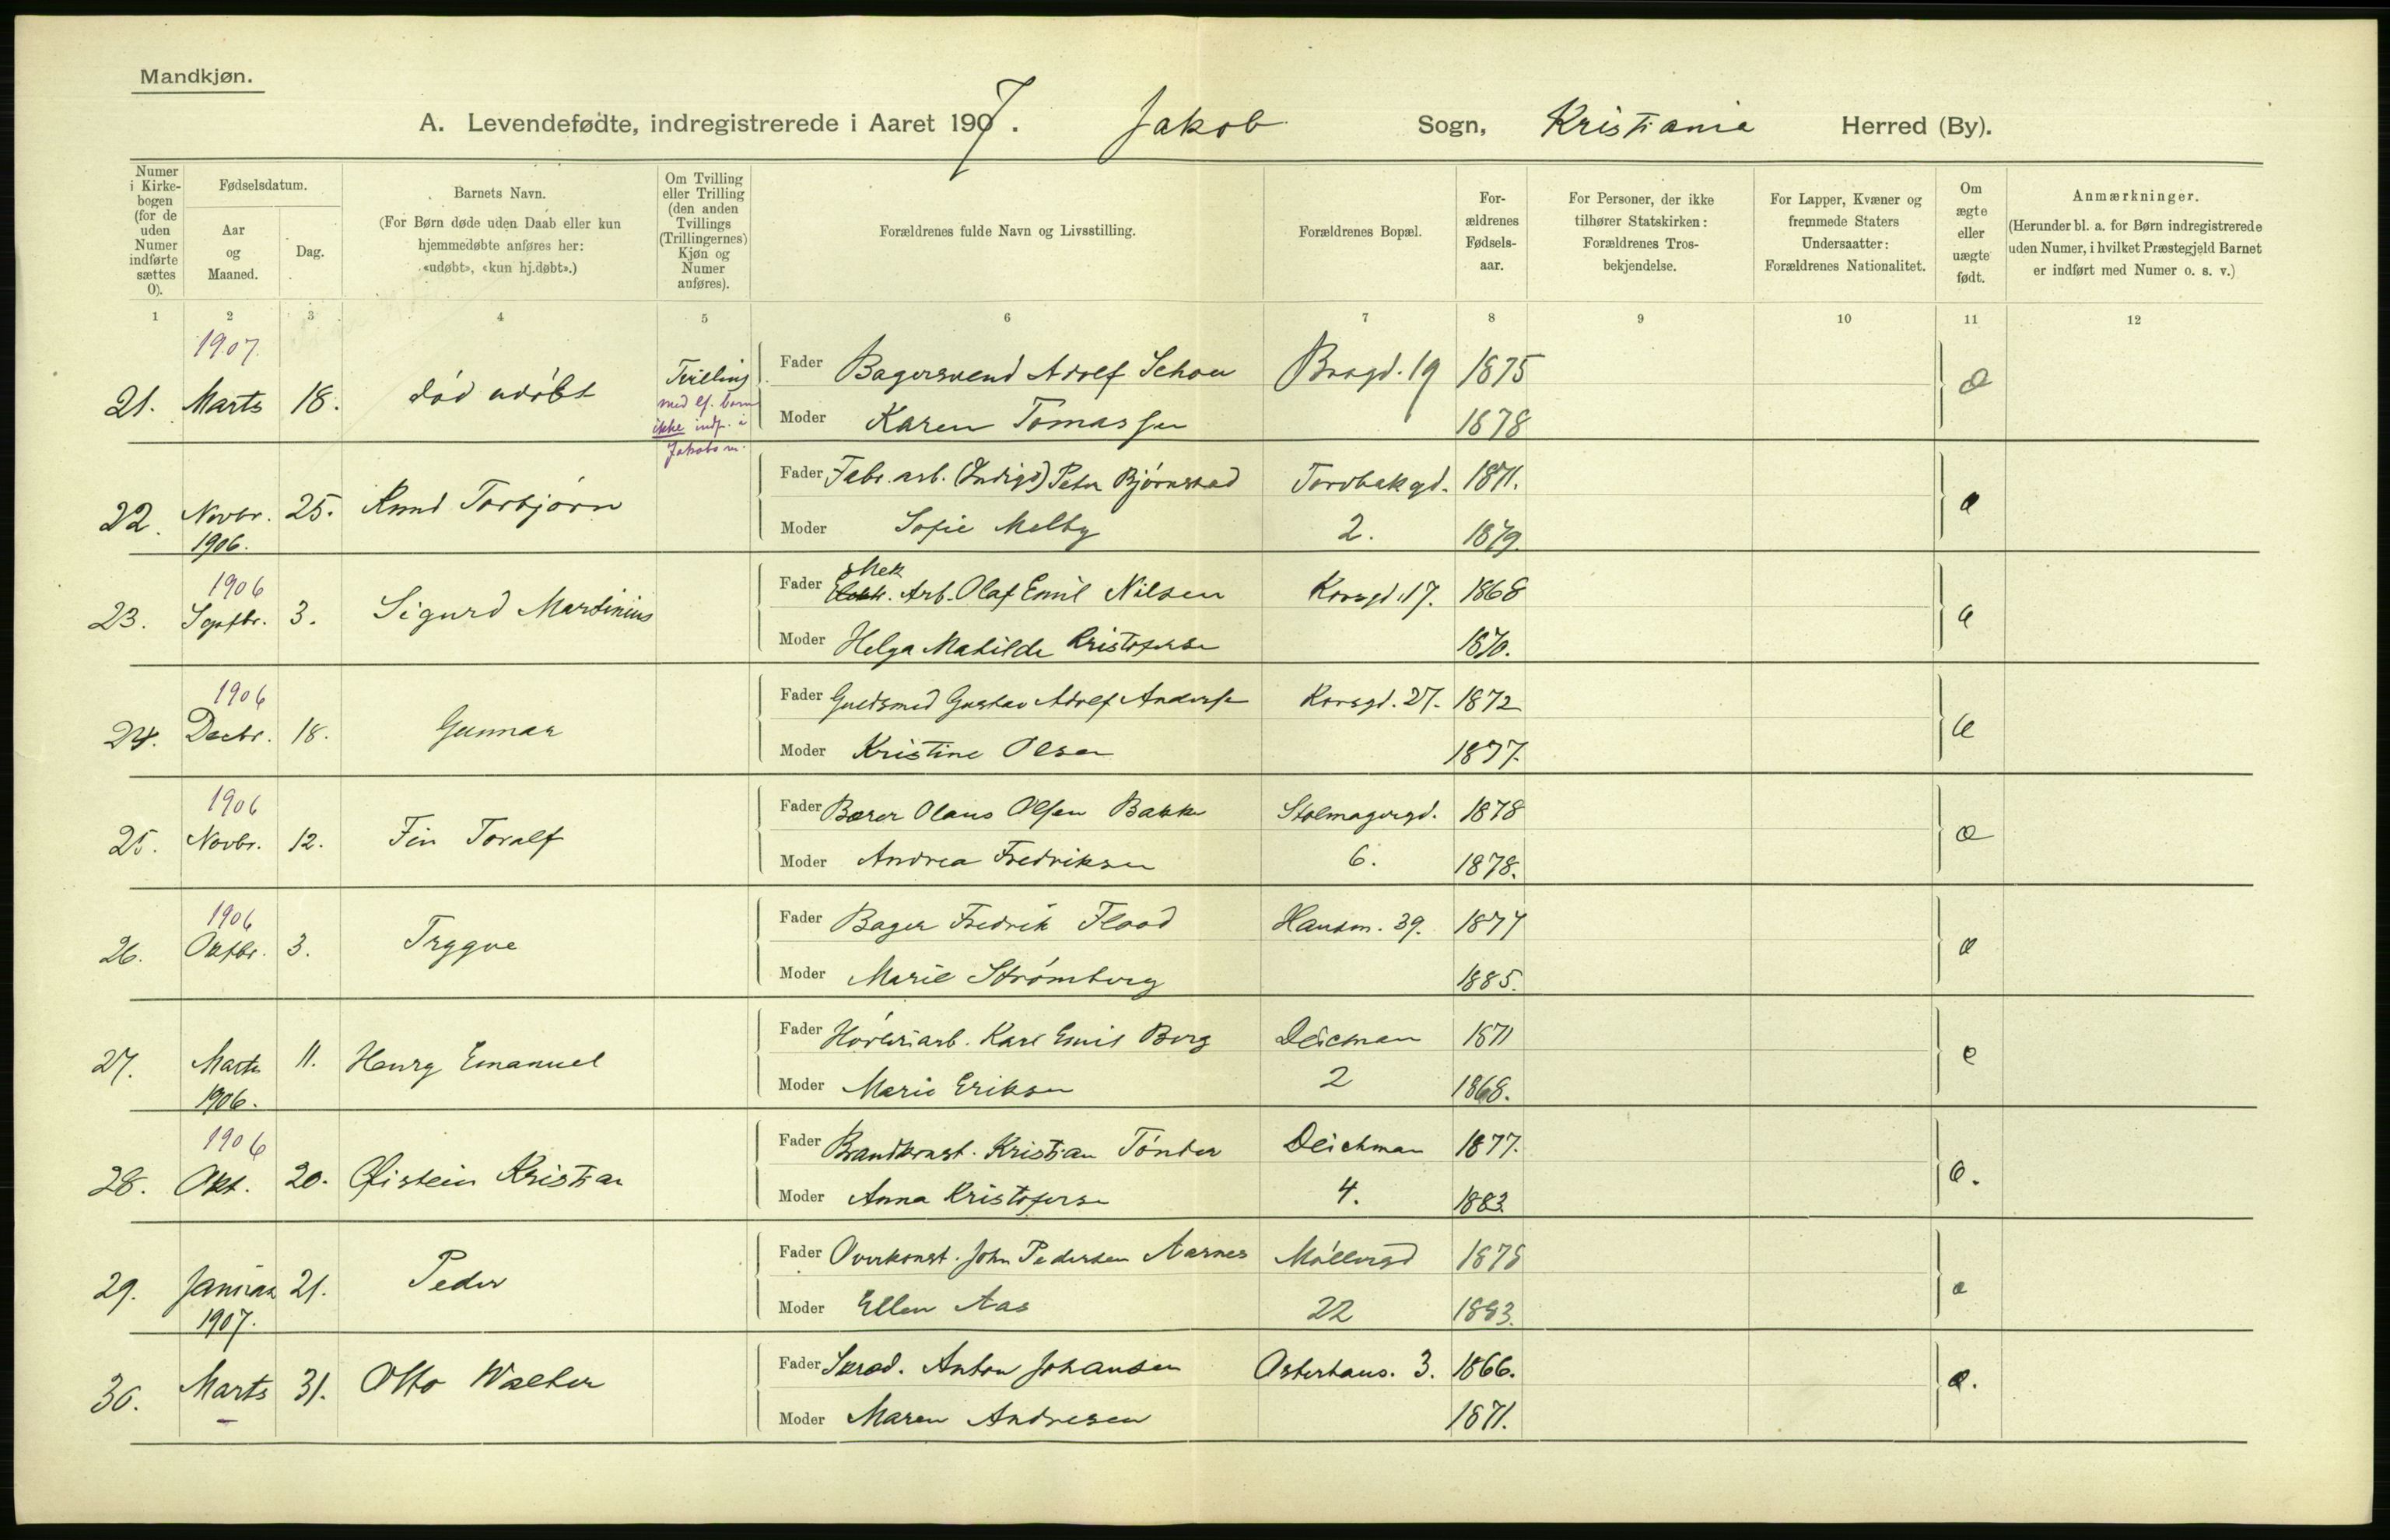 Mandkjøn.
A. Levendefødte, indregistrerede i Aaret 1907. Jakob Sogn, Kristiania Herred (By).
Numer i Kirkebogen (for de uden Numer indførte sættes 0).
Fødselsdatum.
Aar og Maaned.
Dag.
Barnets Navn.
(For Børn døde uden Daab eller kun hjemmedøbte anføres her: «udøbt», «kun hj.døbt».)
Om Tvilling eller Trilling (den anden Tvillings (Trillingernes) Kjøn og Numer anføres).
Forældrenes fulde Navn og Livsstilling.
Forældrenes Bopæl.
Forældrenes Fødselsaar.
For Personer, der ikke tilhører Statskirken: Forældrenes Trosbekjendelse.
For Lapper, Kvæner og fremmede Staters Undersaatter: Forældrenes Nationalitet.
Om ægte eller uægte født.
Anmærkninger.
(Herunder bl. a. for Børn indregistrerede uden Numer, i hvilket Præstegjeld Barnet er indført med Numer o. s. v.)
1 2 3 4 5 6 7 8 9 10 11 12
1907.
21. Marts 18. død udøbt Tvilling Fader Bagersvend Adolf Schou Brogd. 19 1875
ikke indf. i
Moder Karen Tomassen 1878
22. Novbr. 25. Knud Torbjørn Fader Fabr. arb. Peter Bjørnstad Torvbakgd. 1871.
1906. Moder Sofie Melby 2. 1879.
1906
23. Septbr. 3. Sigurd Martinius Fader Mek. Arb. Olaf Emil Nilsen Korsgd. 17. 1868
Moder Helga Mathilde Kristofersen 1870.
1906
24. Decbr. 18. Gunnar Fader Guldsmed Gustav Adolf Andersen Korsgd. 27. 1872
Moder Kristine Olsen 1877.
1906
25. Novbr. 12. Fin Toralf Fader Bærer Olaus Olsen Bakke Stolmagergd. 1878
Moder Andrea Fredriksen 6. 1878.
1906
26. Oktbr. 3. Trygve Fader Bager Fredrik Flood Hausm. 39. 1877
Moder Marie Strømberg 1885.
27. Marts 11. Henry Emanuel Fader Karl Emil Berg Deichman 1871
1906. Moder Marie Eriksen 2 1868.
1906
28. Okt. 20. Øistein Kristian Fader Brandkonst. Kristian Tønder Deichman 1877.
Moder Anna Kristofersen 4. 1883.
29. Januar 21. Peder Fader Overkonst. John Pedersen Aarnes Møllergd 1878
1907. Moder Ellen Aas 22 1883.
30. Marts 31. Otto Walter Fader Skræd. Anton Johansen Osterhaus. 3. 1866.
Moder Maren Andresen 1871.